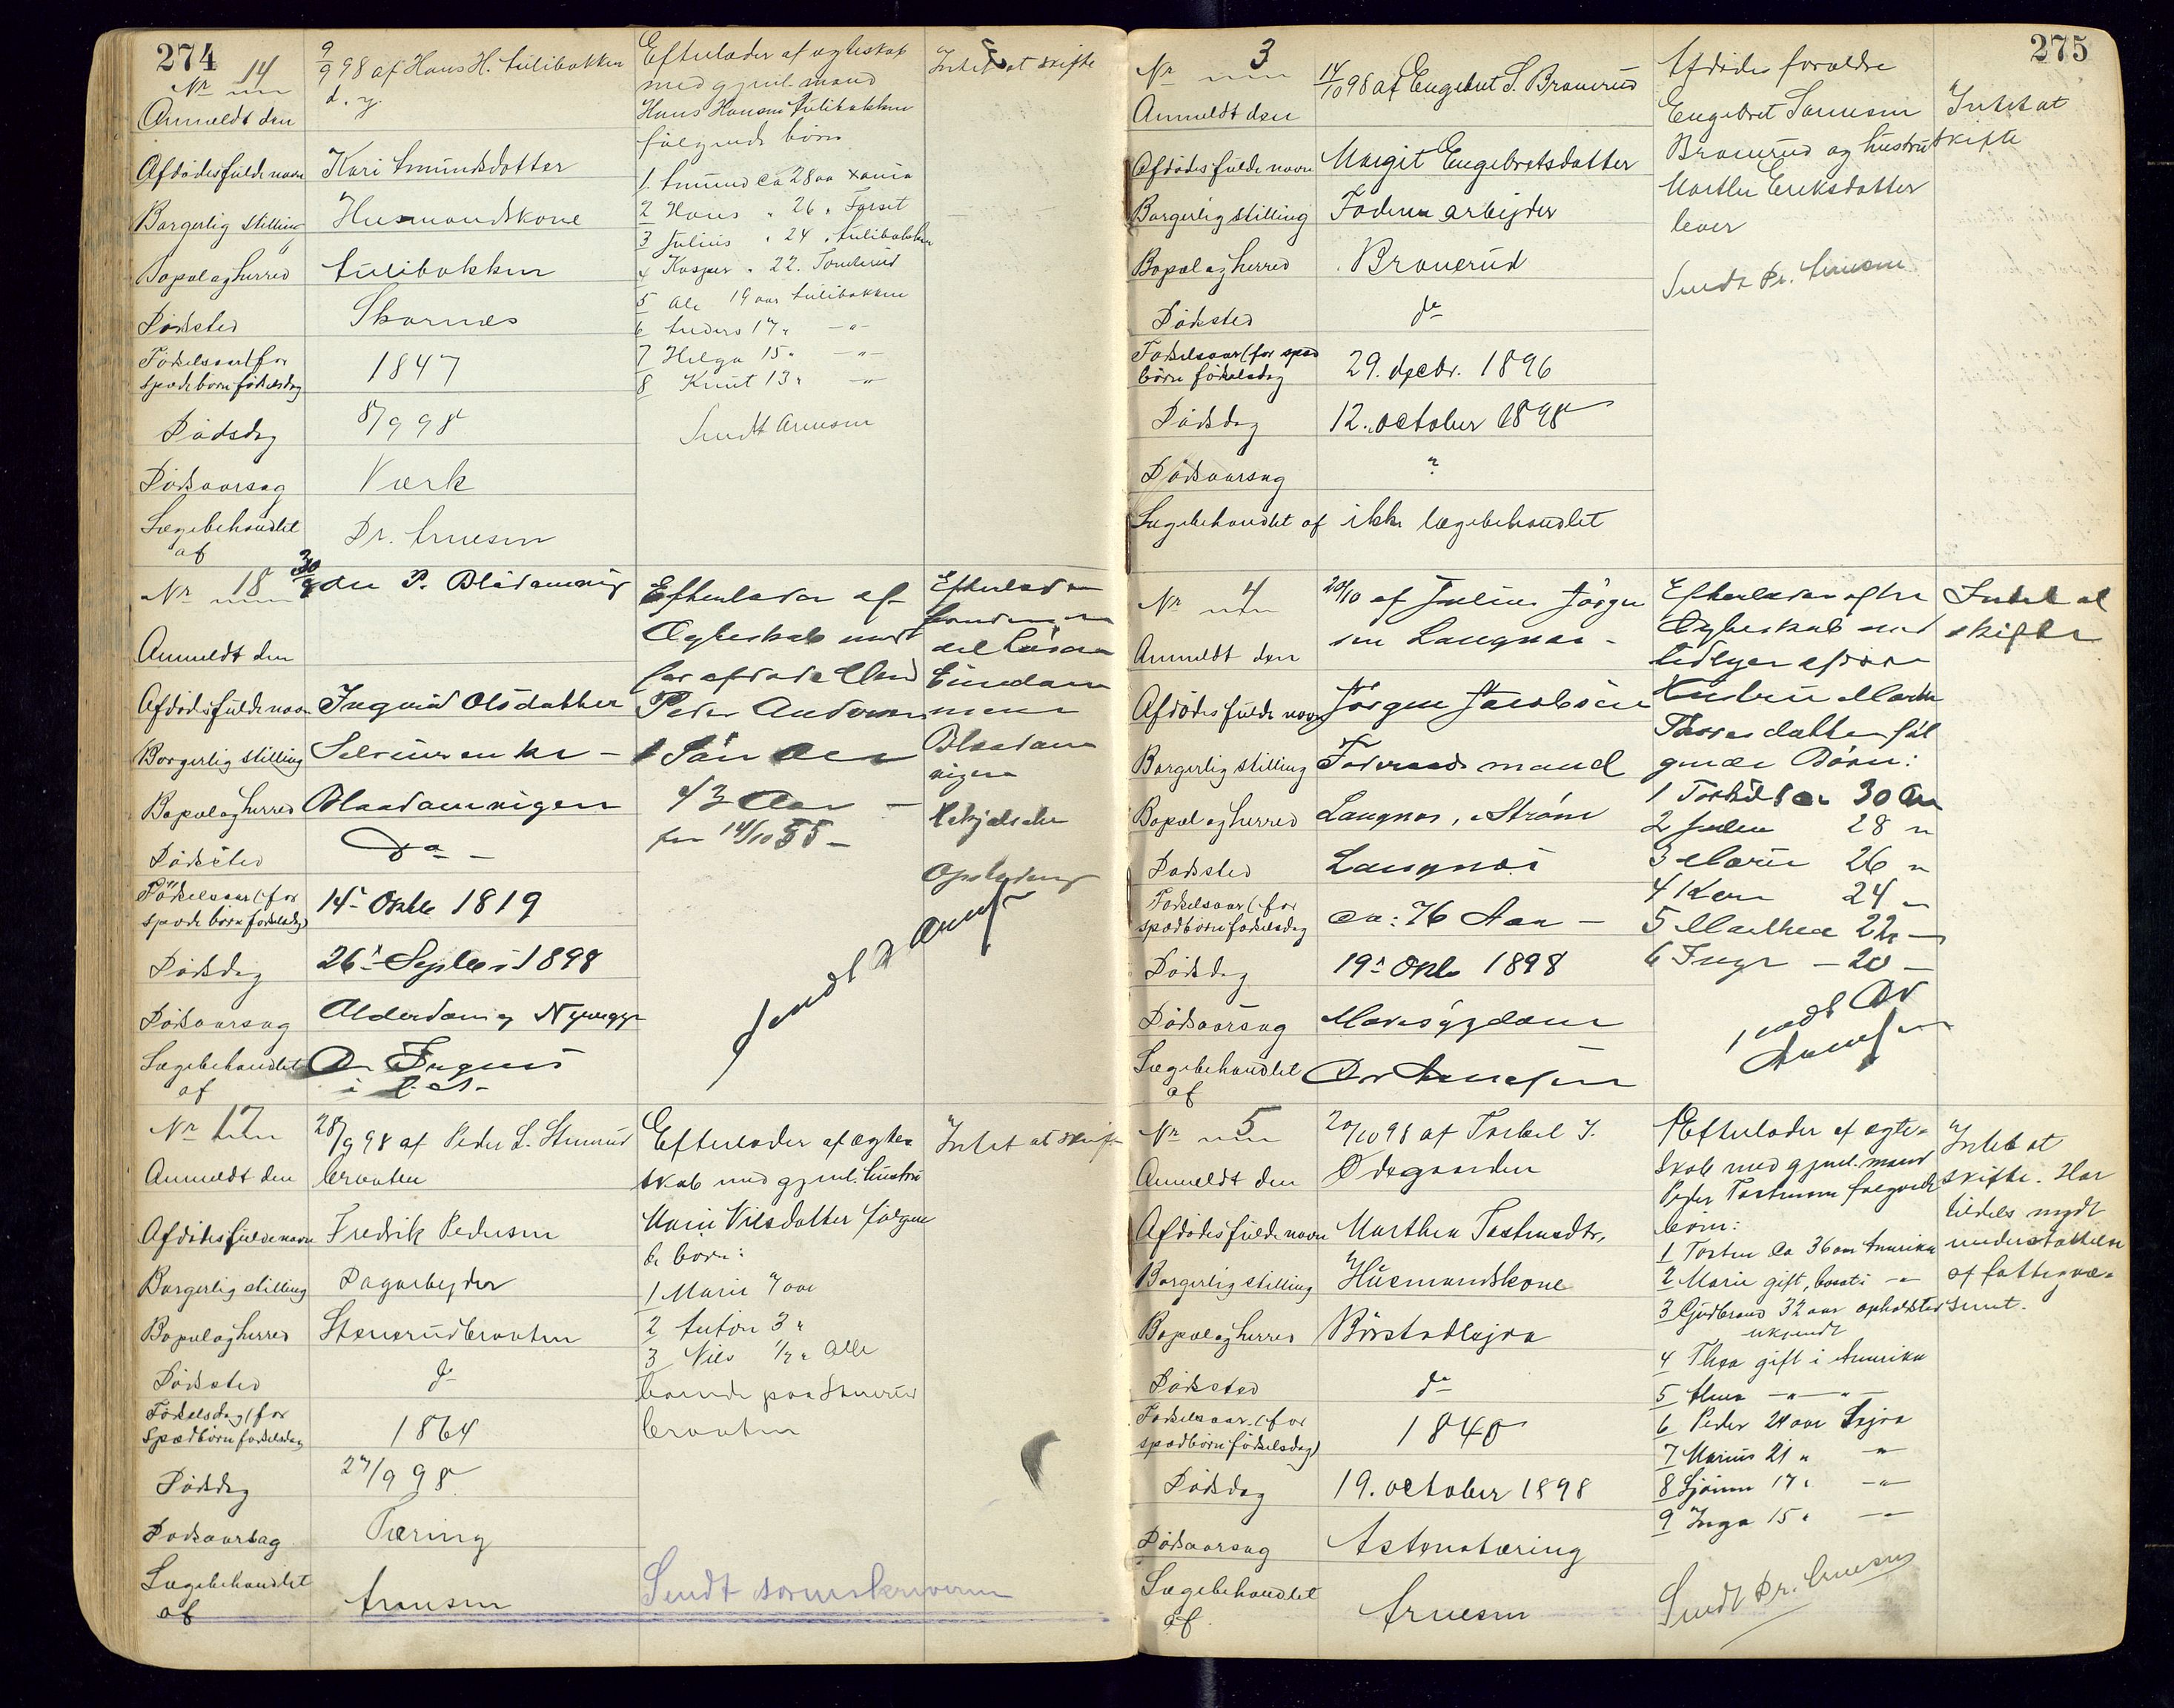 274
Nr 14
Anmeldt den
9/9 98 af Hans H. Lülibakken
d. y.
Afdødes fulde navn
Kari Amundsdatter
Borgerlig stilling
Husmandskone
Bopæl og herred
Lülibakken
Dødssted
Skarnes
Fødselsaar (for
spæde børn fødselsdag
1847
Dødsdag
8/9 98
Dødsaarsag
Værk
Lægebehandlet
af
Dr. Arnesen
Efterlader af ægteskab
med gjenl. mand
Hans Hansen Lülibakken
følgende børn
1. Amund ca 28 aar Xania
2 Hans " 26 "
3 Julius " 24 " Lülibakken
4 Kasper " 22 "
5 Ole 19 aar Lülibakken
6 Anders 17 " —"—
7 Helga 15 " —"—
8 Knut 13 " —"—
Sendt Arnesen
Intet at skifte
Nr 18
30/9 98 P.
Anmeldt den
Afdødes fulde navn
Ingrid Olsdatter
Borgerlig stilling
Bopæl og herred
Dødssted
Do —
Fødselsaar (for
spæde børn fødselsdag)
14de Oktbr 1819
Dødsdag
26de Septbr 1898
Dødsaarsag
Alderdom og
Lægebehandlet
af
Dr
Efterlader af
Ægteskab med
før afdøde Mand
Peder Andersen
1 Søn Ole
43 Aar —
før 14/10 55 —
Efterlad
Sendt Dr Arnesen
Nr 17
Anmeldt den
28/9 98 af Peder L. Stenerud
braaten
Afdødes fulde navn
Fredrik Pedersen
Borgerlig stilling
Dagarbejder
Bopæl og herred
Stenerudbraaten
Dødssted
do
Fødselsdag (for
spædbørn fødselsdag
1864
Dødsdag
27/9 98
Dødsaarsag
Tæring
Lægebehandlet
af
Arnesen
Efterlader af ægte-
skab med gjenl. hustru
Marie Nilsdatter følgen
de børn:
1 Marie 7 aar
2 Anton 3 "
3 Nils 1/2 " Alle
boende paa Stenerud
braaten
Sendt sorenskriveren
Intet at skifte
275
Nr 3
Anmeldt den
14/10 98 af Engebret S. Branerud
Afdødes fulde navn
Margit Engebretsdatter
Borgerlig stilling
Faderen arbejder
Bopæl og herred
Branerud
Dødssted
do
Fødselsaar (for spæd
børn fødselsdag
29. decbr. 1896
Dødsdag
12. october 1898
Dødsaarsag
?
Lægebehandlet af
ikke lægebehandlet
Afdødes forældre
Engebret Sørensen
Branerud og hustru
Marthe Eriksdatter
lever
Sendt Dr. Arnesen
Intet at
skifte
Nr 4
Anmeldt den
20/10 af Julius Jørgen
sen Langnæs —
Afdødes fulde navn
Jørgen Jacobsen
Borgerlig stilling
Føderaadsmand
Bopæl og herred
Langnæs, Strøm
Dødssted
Langnæs
Fødselsaar (for
spædbørn fødselsdag
ca: 76 Aar —
Dødsdag
19de Oktb 1898
Dødsaarsag
Mavesygdom
Lægebehandlet
af
Dr Arnesen
Efterlader efter
Ægteskab med
tidligere afdøde
Hustru Marthe
datter føl
gende Børn:
1 30 Aar
2 28 "
3 Marie 26 "
4 Karen 24 "
5 Marthea 22 —
6 Inga — 20 —
Sendt Dr
Arnesen
Intet at
skifte
Nr 5
Anmeldt den
20/10 98 af Torkel T.
Ødegaarden
Afdødes fulde navn
Marthea Tostensdtr.
Borgerlig stilling
Husmandskone
Bopæl og herred
Børstadlejra
Dødssted
do
Fødselsaar (for
spædbørn fødselsdag)
1840
Dødsdag
19. october 1898
Dødsaarsag
Astmatæring
Lægebehandlet
af
Arnesen
Efterlader af ægte-
skab med gjenl. mand
Peder Tostensen følgende
børn:
1 Tosten ca 36 aar Amerika
2 Marie gift, bosat i —"—
3 Gudbrand 32 aar opholdsted
ukjendt
4 Thea gift i Amerika
5 Anna —"— "—
6 Peder 24 aar Lejra
7 Marius 21 " "
8 17 " —"—
9 Inga 15 " —"—
Sendt Dr. Arnesen
Intet at
skifte. Har
tildels nydt
understøttelse
af fattigvæ-
senet.